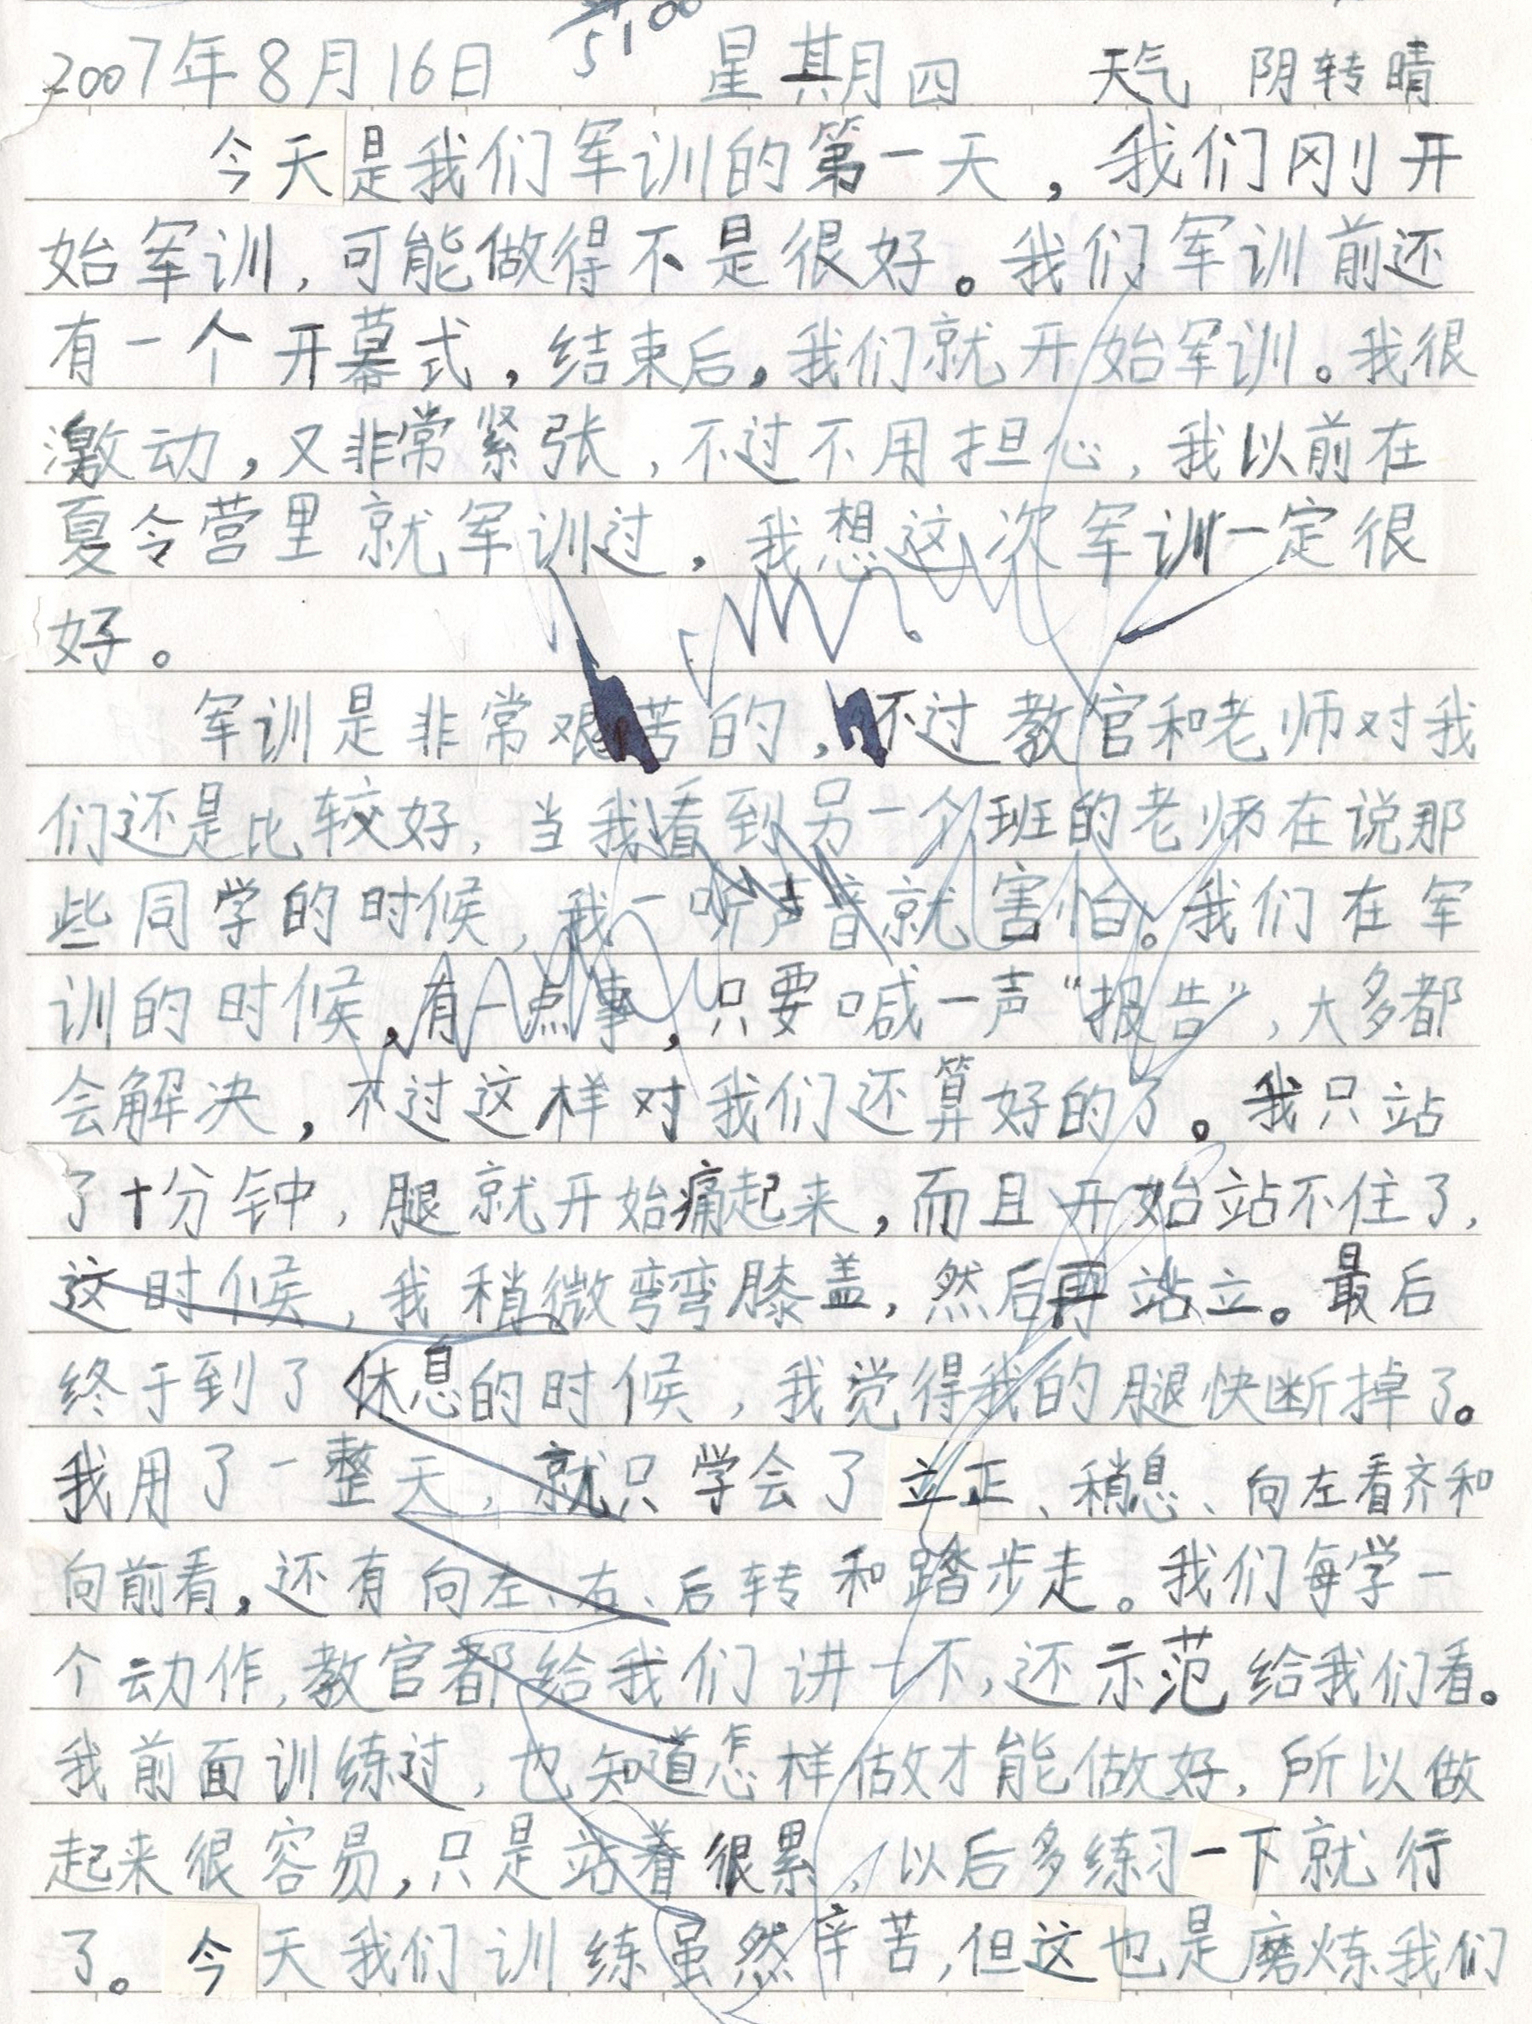 5100
2007年8月16日 星期四 天气 阴转晴
今天是我们军训的第一天，我们刚开
始军训，可能做得不是很好。我们军训前还
有一个开幕式，结束后，我们就开始军训。我很
激动，又非常紧张，不过不用担心，我以前在
夏令营里就军训过，我想这次军训一定很
好。
军训是非常艰苦的，不过教官和老师对我
们还是比较好，当我看到另一个班的老师在说那
些同学的时候，我一听声音就害怕。我们在军
训的时候，有一点事，只要喊一声“报告”，大多都
会解决，不过这样对我们还算好的了。我只站
了十分钟，腿就开始痛起来，而且开始站不住了，
这时候，我稍微弯弯膝盖，然后再站立。最后
终于到了休息的时候，我觉得我的腿快断掉了。
我用了一整天，就只学会了立正、稍息、向左看齐和
向前看，还有向左、右、后转和踏步走。我们每学一
个动作，教官都给我们讲一下，还示范给我们看。
我前面训练过，也知道怎样做才能做好，所以做
起来很容易，只是站着很累，以后多练习一下就行
了。今天我们训练虽然辛苦，但这也是磨炼我们